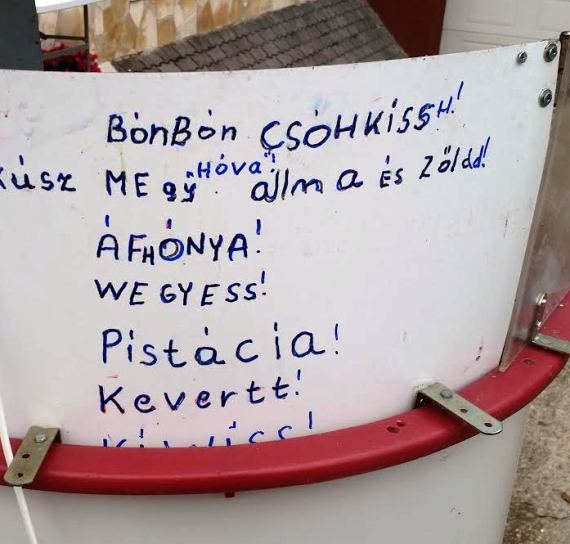 BónBón CSÓHKissH!
kúsz MEgy "Hóva"! állma és Zöldd!
ÁFHÓNYA!
WEGYESS!
Pistácia!
Kevertt!
Kiwiss!